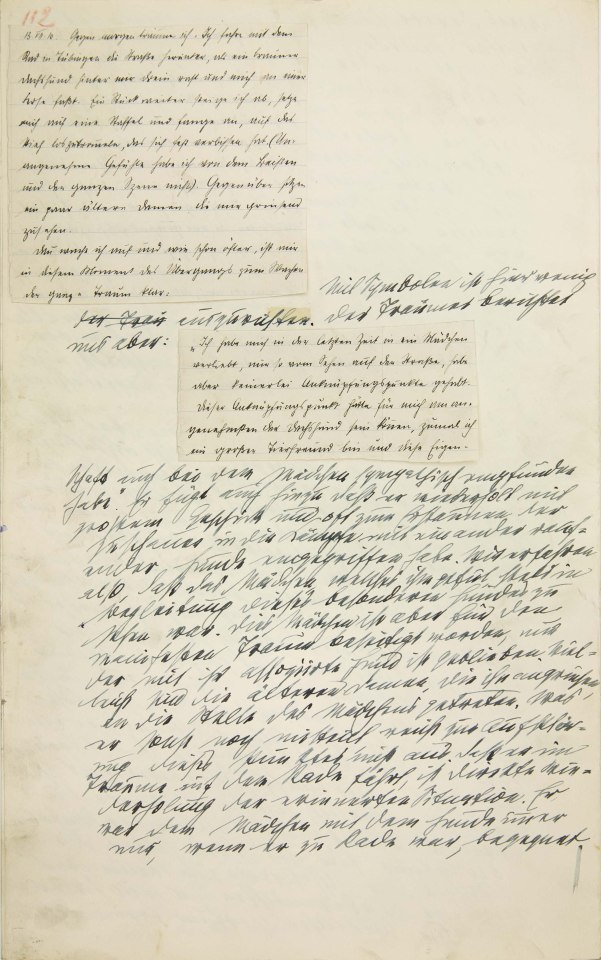 112
13 VII 10. Gegen morgen träume ich: Ich fahre mit dem
Rad in Tübingen die Straße herunter, als ein brauner
Dachshund hinter mir drein rast und mich an einer
Ferse faßt. Ein Stück weiter steige ich ab, setze
mich auf eine Staffel und fange an, auf das
Vieh loszutrommeln, das sich fest verbissen hat. (Un-
angenehme Gefühle habe ich von dem Beißen
und der ganzen Szene nicht). Gegenüber sitzen
ein paar ältere Damen die mir grinsend
zusehen.
Dann wache ich auf und wie schon öfter, ist mir
in diesem Moment des Übergangs zum Wachen
der ganze Traum klar:
Mit Symbolen ist hier wenig
der Trau auszurichten. Der Träumer berichtet
uns aber:
„Ich habe mich in der letzten Zeit in ein Mädchen
verliebt, nur so vom Sehen auf der Straße, habe
aber keinerlei Anknüpfungspunkte gehabt.
Dieser Anknüpfungspunkt hätte für mich am an-
genehmsten der Dachshund sein können, zumal ich
ein großer Tierfreund bin und diese Eigen-
schaft auch bei dem Mädchen sympathisch empfunden
habe". Er fügt auch hinzu daß er wiederholt mit
großem Geschick und oft zum Erstaunen der
Zuschauer in die Kämpfe mit einander rauf-
ender Hunde eingegriffen habe. Wir erfahren
also, daß das Mädchen, welches ihm gefiel, stets in
Begleitung dieses besonderen Hundes zu
sehen war. Dies Mädchen ist aber für den
manifesten Traum beseitigt worden, nur
der mit ihr assoziirte Hund ist geblieben. Viel-
leicht sind die älteren Damen, die ihn angrinsen,
an die Stelle des Mädchens getreten. Was
er sonst noch mitteilt reicht zur Aufklär-
ung dieses Punktes nicht aus. Daß er im
Traume auf dem Rade fährt, ist direkte Wie-
derholung der erinnerten Situation. Er
war dem Mädchen mit dem Hunde immer
nur, wenn er zu Rade war, begegnet.